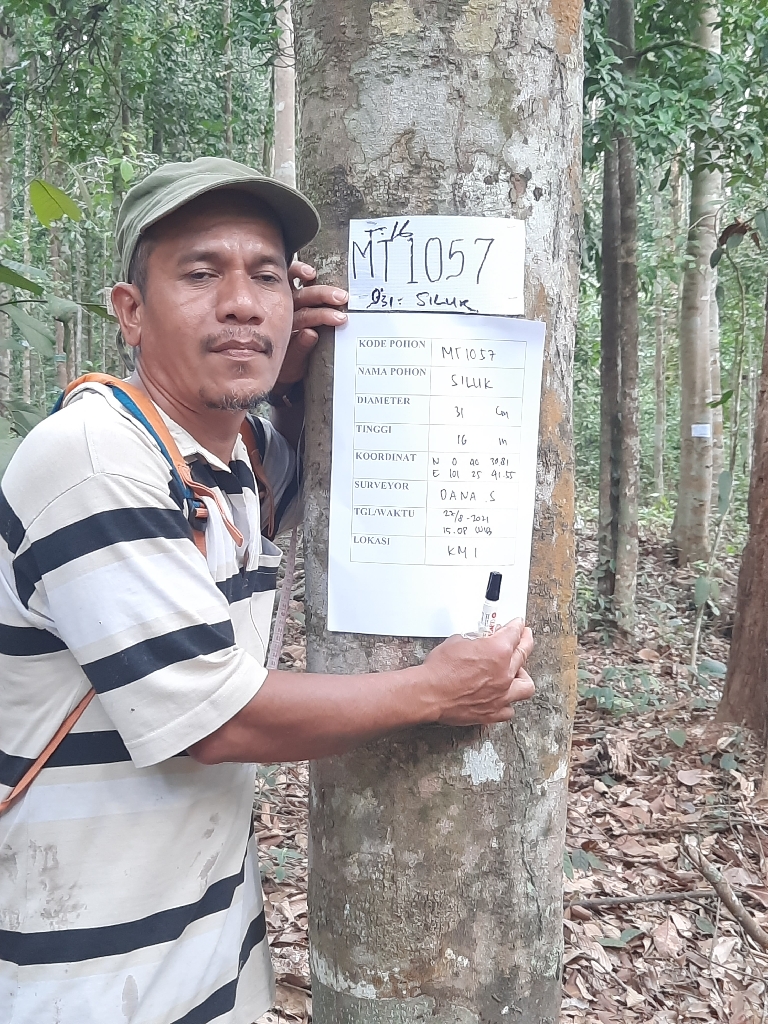 T: 16
MT1057
D: 31: SILUK
KODE POHON MT1057
NAMA POHON SILUK
DIAMETER 31 Cm
TINGGI 16 m
KOORDINAT N 0 40 30.81
E 101 25 41.55
SURVEYOR DANA.S
TGL/WAKTU 27/8-2021
15.08 WIB
LOKASI KM 1